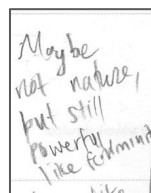 Maybe
not nature,
but still
powerful
like